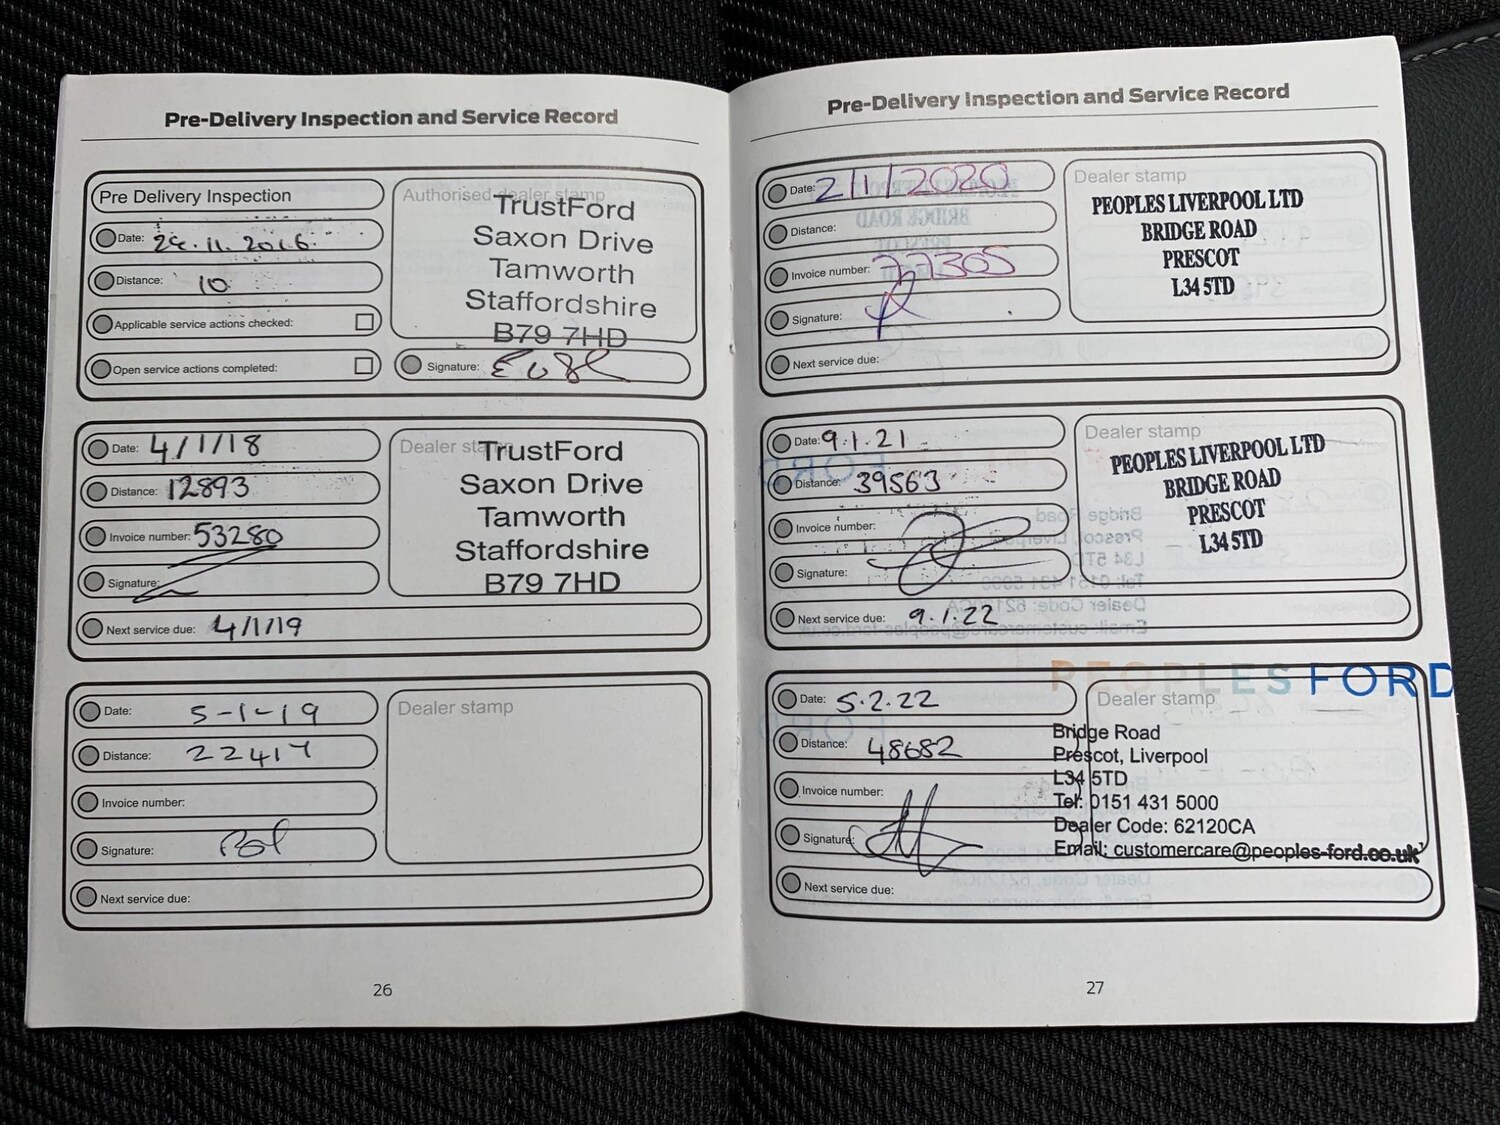 Pre-Delivery Inspection and Service Record
Pre Delivery Inspection
Authorised dealer stamp
Date: 29.11.2016
Distance: 10
Applicable service actions checked:
Open service actions completed:
TrustFord
Saxon Drive
Tamworth
Staffordshire
B79 7HD
Signature:
Date: 4/1/18
Distance: 12893
Invoice number: 53280
Signature:
Next service due: 4/1/19
Dealer stamp
TrustFord
Saxon Drive
Tamworth
Staffordshire
B79 7HD
Date: 5-1-19
Distance: 22417
Invoice number:
Signature:
Next service due:
Dealer stamp
26
Pre-Delivery Inspection and Service Record
Date: 2/1/2020
Distance:
Invoice number: 77305
Signature:
Next service due:
Dealer stamp
PEOPLES LIVERPOOL LTD
BRIDGE ROAD
PRESCOT
L34 5TD
Date: 9.1.21
Distance: 39563
Invoice number:
Signature:
Next service due: 9.1.22
Dealer stamp
PEOPLES LIVERPOOL LTD
BRIDGE ROAD
PRESCOT
L34 5TD
Date: 5.2.22
Distance: 48682
Invoice number:
Signature:
Next service due:
PEOPLES FORD
Dealer stamp
Bridge Road
Prescot, Liverpool
L34 5TD
Tel: 0151 431 5000
Dealer Code: 62120CA
Email: customercare@peoples-ford.co.uk
27